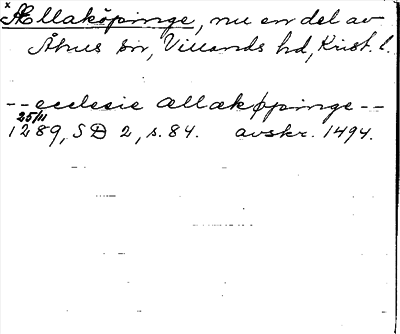 x Ællaköpinge, nu en del av
Åhus sn, Villands hd, Krist. l.
-- ecclesie ællækøpinge --
25/11
1289, SD 2, s. 84. avskr. 1494.